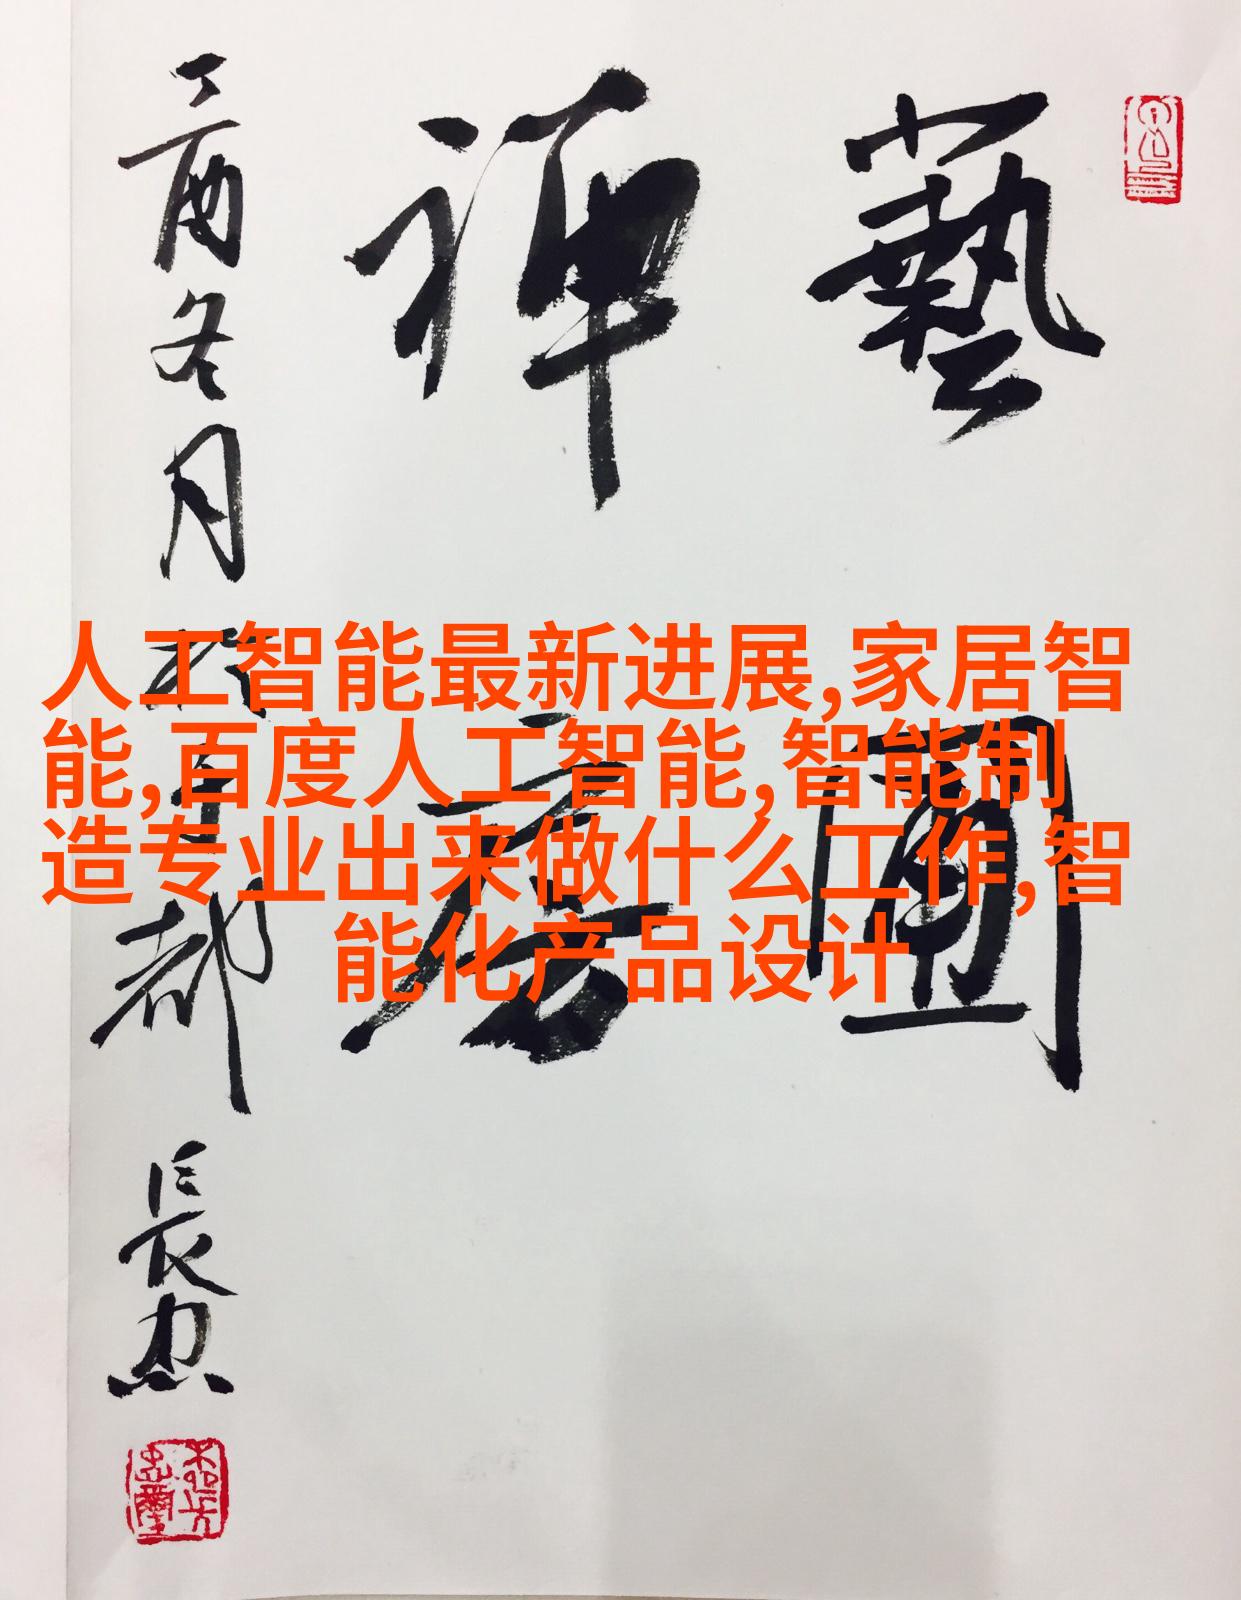 藝
禪
丁酉冬月
都
長
人工智能最新进展,家居智
能,百度人工智能,智能制
造专业出来做什么工作,智
能化产品设计